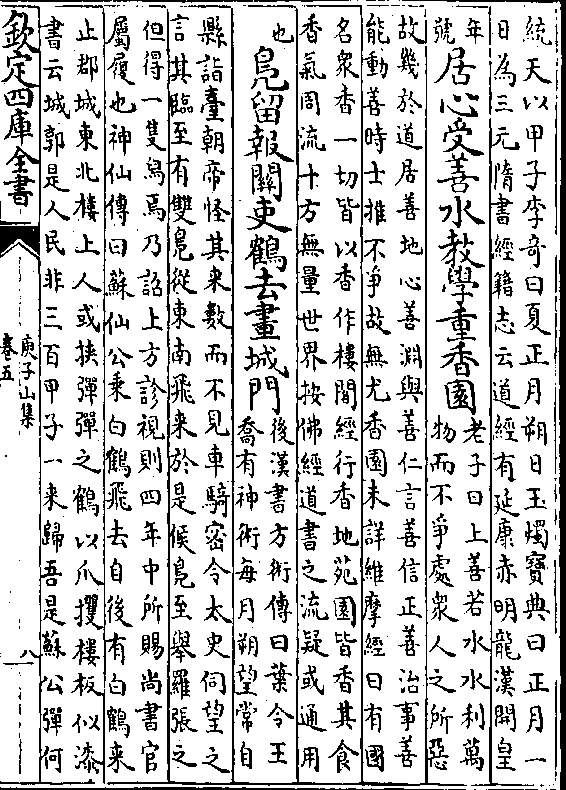 統天以甲子李奇曰夏正月朔日玉燭寶典曰正月一
日為三元隋書經籍志云道經有延康赤明龍漢開皇
年號
居心受善水教學重香園
老子曰上善若水水利萬
物而不爭處衆人之所惡
故幾於道居善地心善淵與善仁言善信正善治事善
能動善時士推不爭故無尤香園未詳維摩經曰有國
名衆香一切皆以香作樓閣經行香地苑園皆香其食
香氣周流十方無量世界按佛經道書之流疑或通用
也
鳬留報關吏鶴去畫城門
後漢書方術傳曰葉令王
喬有神術每月朔望常自
縣詣臺朝帝怪其来數而不見車騎密令太史伺望之
言其臨至有雙鳬從東南飛来於是候鳬至舉羅張之
但得一隻舄焉乃詔上方診視則四年中所賜尚書官
屬履也神仙傳曰蘇仙公乘白鶴飛去自後有白鶴来
止郡城東北樓上人或挾彈彈之鶴以爪攫樓板似漆
書云城郭是人民非三百甲子一来歸吾是蘇公彈何
欽定四庫全書
庾子山集
卷五
八